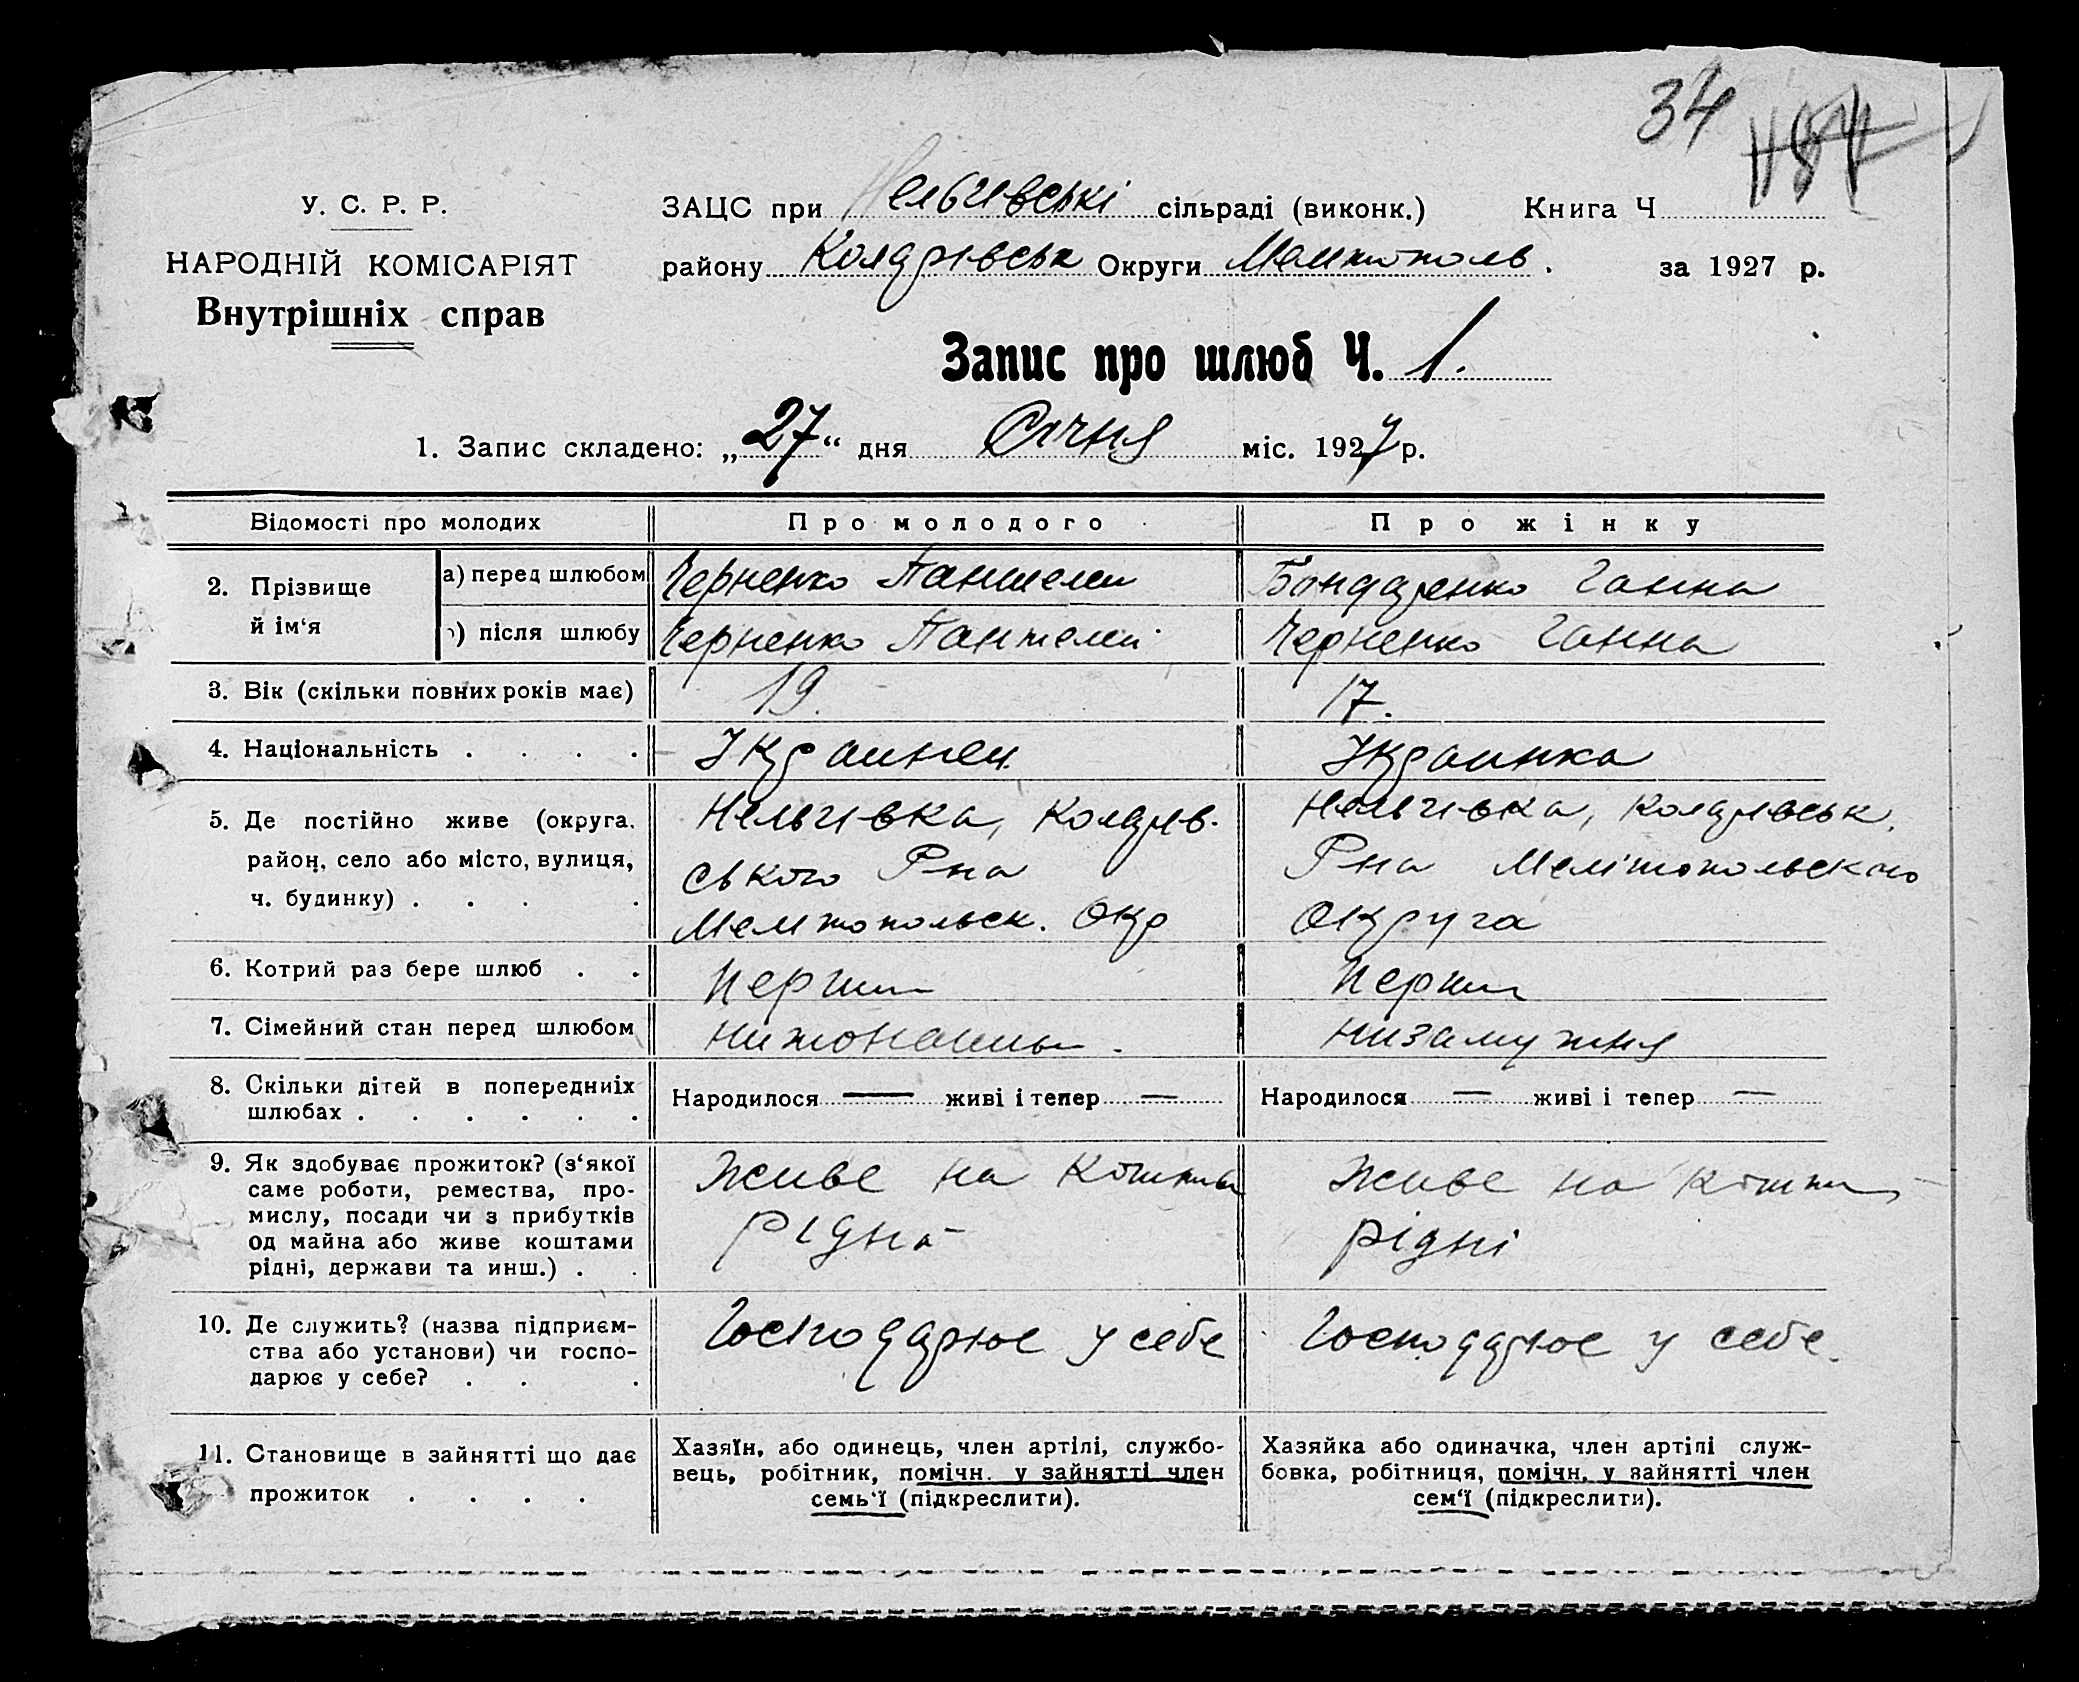 34
У. С. Р. Р.
НАРОДНІЙ КОМІСАРІЯТ
Внутрішніх справ
ЗАЦС при Нельгівські сільраді (виконк.) Книга Ч
району Коларівськ Округи Мелітополь. за 1927 р.
Запис про шлюб Ч. 1.
1. Запис складено: „27“ дня Січня міс. 1927 р.
Відомості про молодих
Про молодого
Про жінку
2. Прізвище й ім‘я
а) перед шлюбом
Черненко Пантелей
Бондаренко Ганна
) після шлюбу
Черненко Пантелей
Черненко Ганна
3. Вік (скільки повних років має)
19.
17.
4. Національність . . . .
Украинец
Украинка
5. Де постійно живе (округа,
район, село або місто, вулиця,
ч. будинку) . . . .
Нельгівка, Коларів-
ського Р-на
Мелітопольск. Окр
Нельгівка, Коларівськ.
Р-на Мелітопольського
Округа
6. Котрий раз бере шлюб . .
Перший
Перший
7. Сімейний стан перед шлюбом
незамужня
8. Скільки дітей в попередниіх
шлюбах . . . . . .
Народилося — живі і тепер —
Народилося — живі і тепер —
9. Як здобуває прожиток? (з‘якої
саме роботи, ремества, про-
мислу, посади чи з прибутків
од майна або живе коштами
рідні, держави та инш.) . .
Живе на кошти
рідні
Живе на кошти
рідні
10. Де служить? (назва підприєм-
ства або установи) чи госпо-
дарює у себе? . . .
Господарює у себе
Господарює у себе.
11. Становище в зайнятті що дає
прожиток . . . .
Хазяїн, або одинець, член артілі, службо-
вець, робітник, помічн. у зайнятті член
семь‘ї (підкреслити).
Хазяйка або одиначка, член артілі служ-
бовка, робітниця, помічн. у зайнятті член
сем‘ї (підкреслити).